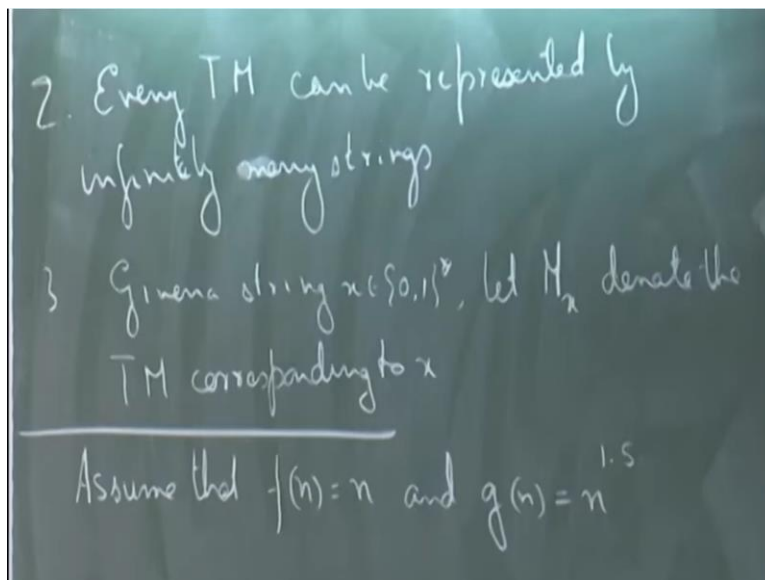 2. Every TM can be represented by
infinitely many strings
3 Given a string x ∈ {0,1}*, let M_x denote the
TM corresponding to x
Assume that f(n) = n and g(n) = n^1.5